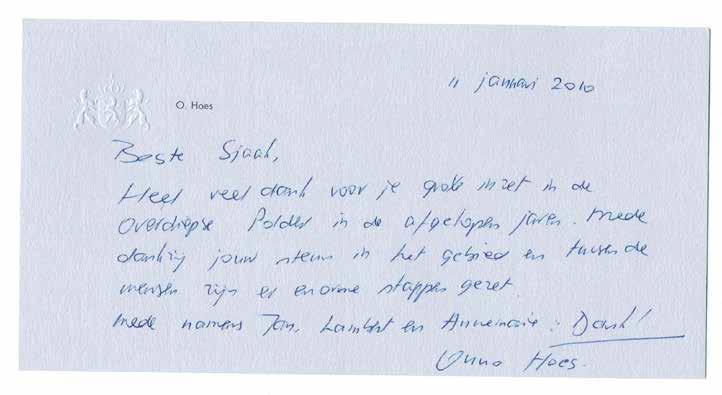 11 januari 2010
O. Hoes
Beste Sjaak,
Heel veel dank voor je grote inzet in de
Overdiepse Polder in de afgelopen jaren. Mede
dankzij jouw steun in het gebied en tussen de
mensen zijn er enorme stappen gezet.
Mede namens Jan, Lambert en Annemarie: Dank!
Onno Hoes.